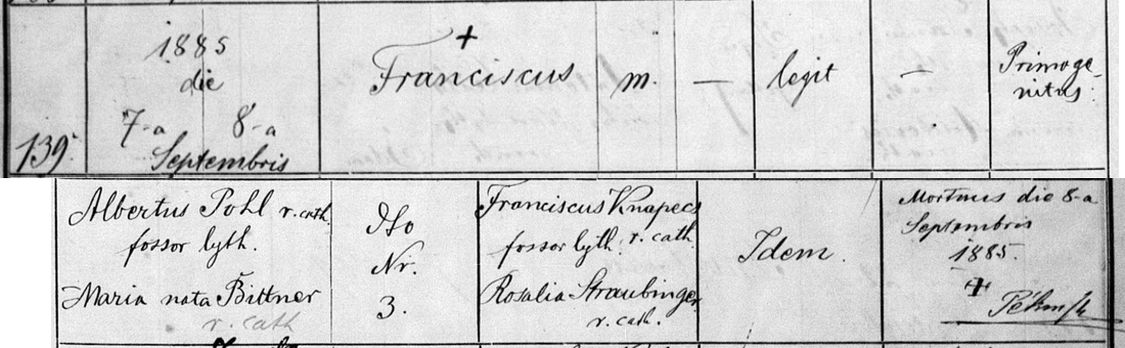 139.
1885
die
7-a 8-a
Septembris
+
Franciscus
m.
—
legit
—
Primoge-
nitus.
Albertus Pohl r. cath.
fossor lyth.
Maria nata Bittner
r. cath
Nr.
3.
Franciscus Knapecs
fossor lyth. r. cath.
Rosalia Straubinger
r. cath.
Idem.
Mortuus die 8-a
Septembris
1885.
+